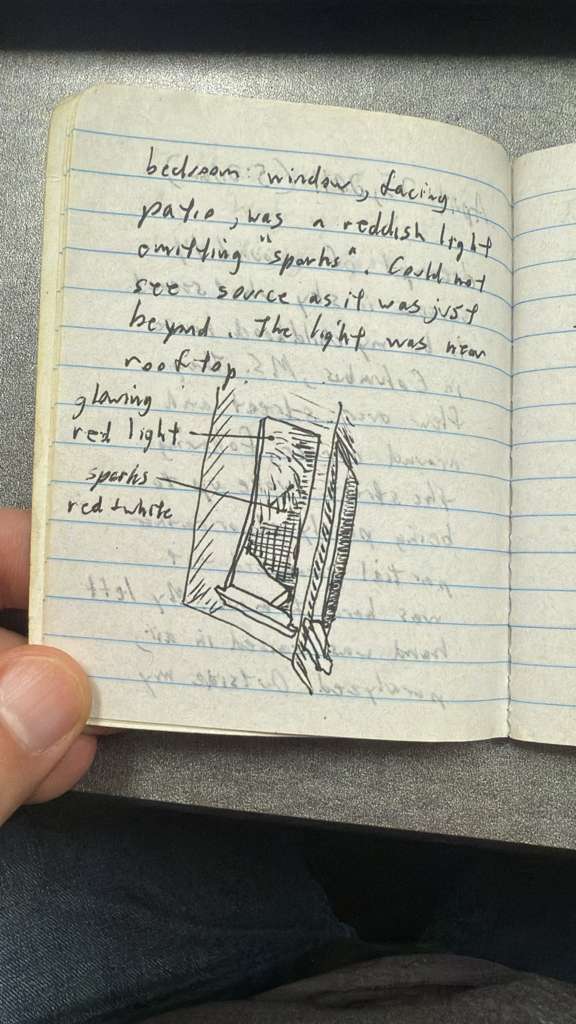 bedroom window, facing
patio, was a reddish light
emitting "sparks". Could not
see source as it was just
beyond. The light was near
rooftop.
glowing
red light
sparks
red + white